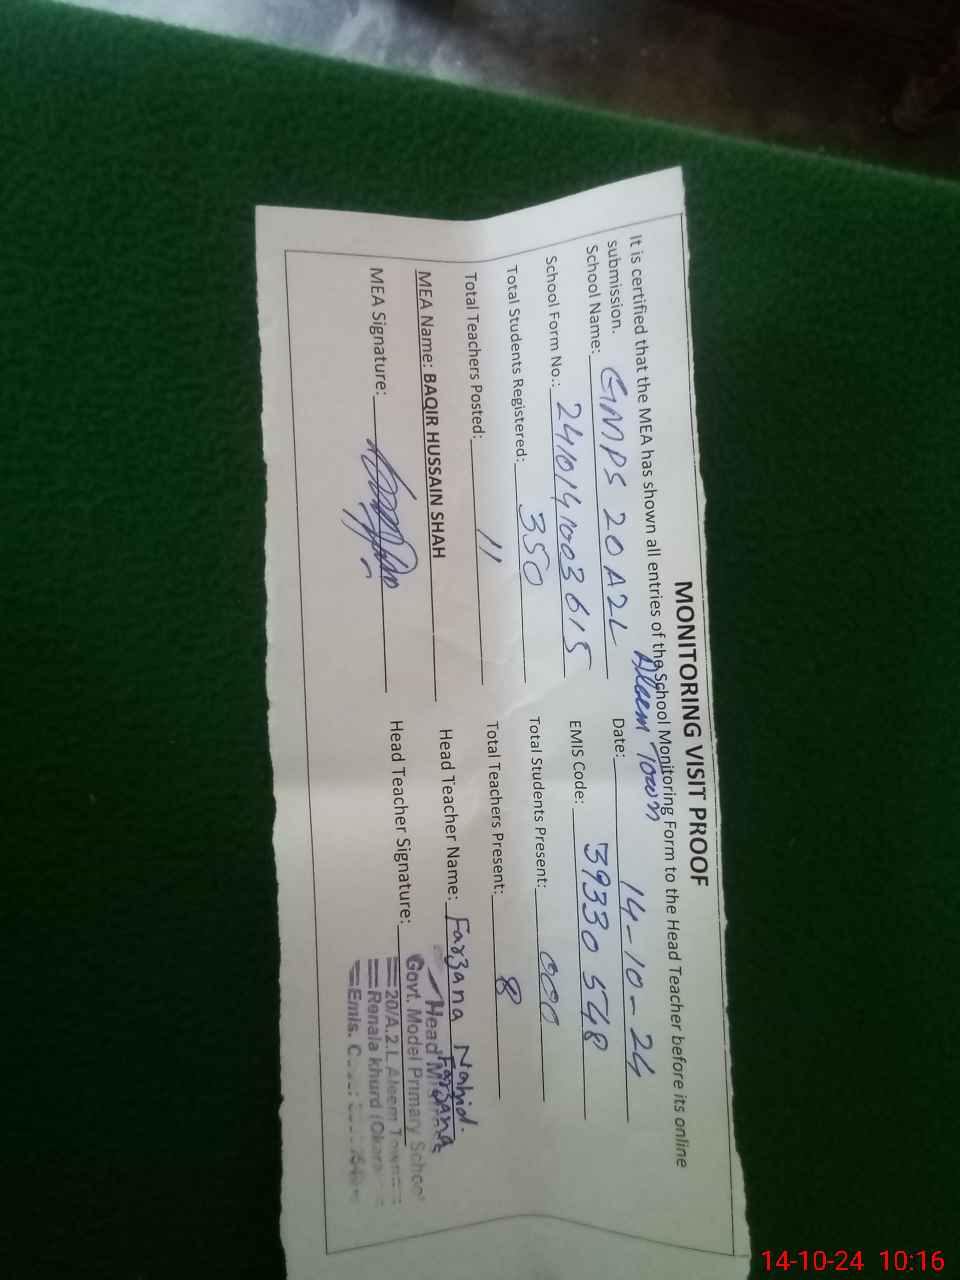 MONITORING VISIT PROOF
It is certified that the MEA has shown all entries of the School Monitoring Form to the Head Teacher before its online
submission.
Aleem Town
School Name: GMPS 20 A2L Date: 14-10-24
School Form No.: 2410141003615 EMIS Code: 39330548
Total Students Registered: 350 Total Students Present: 000
Total Teachers Posted: 11 Total Teachers Present: 8
MEA Name: BAQIR HUSSAIN SHAH Head Teacher Name: Farzana Nahid.
MEA Signature: Head Teacher Signature: Farzana
Head Mistress
Govt. Model Primary School
20/A.2.L Aleem Town
Renala khurd (Okara
Emis. C
14-10-24 10:16